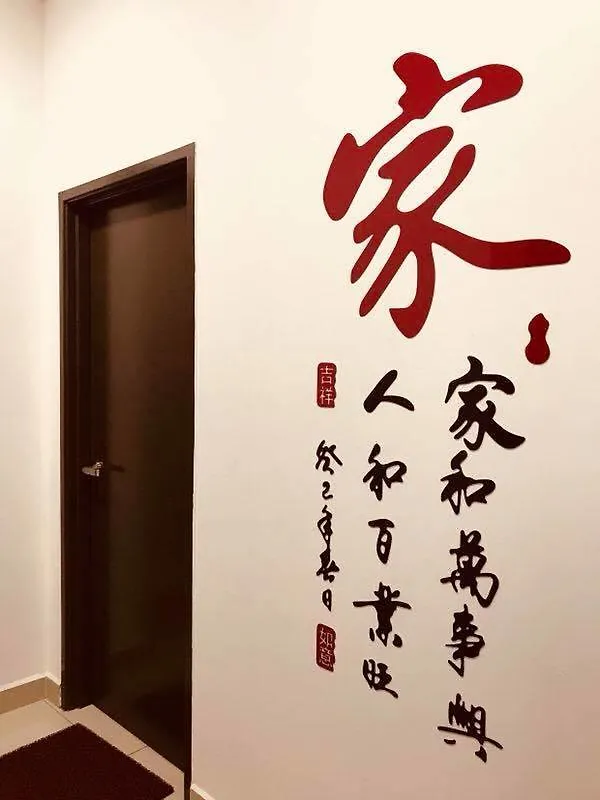 家
家和萬事興
人和百業旺
吉祥
癸巳年春日
如意